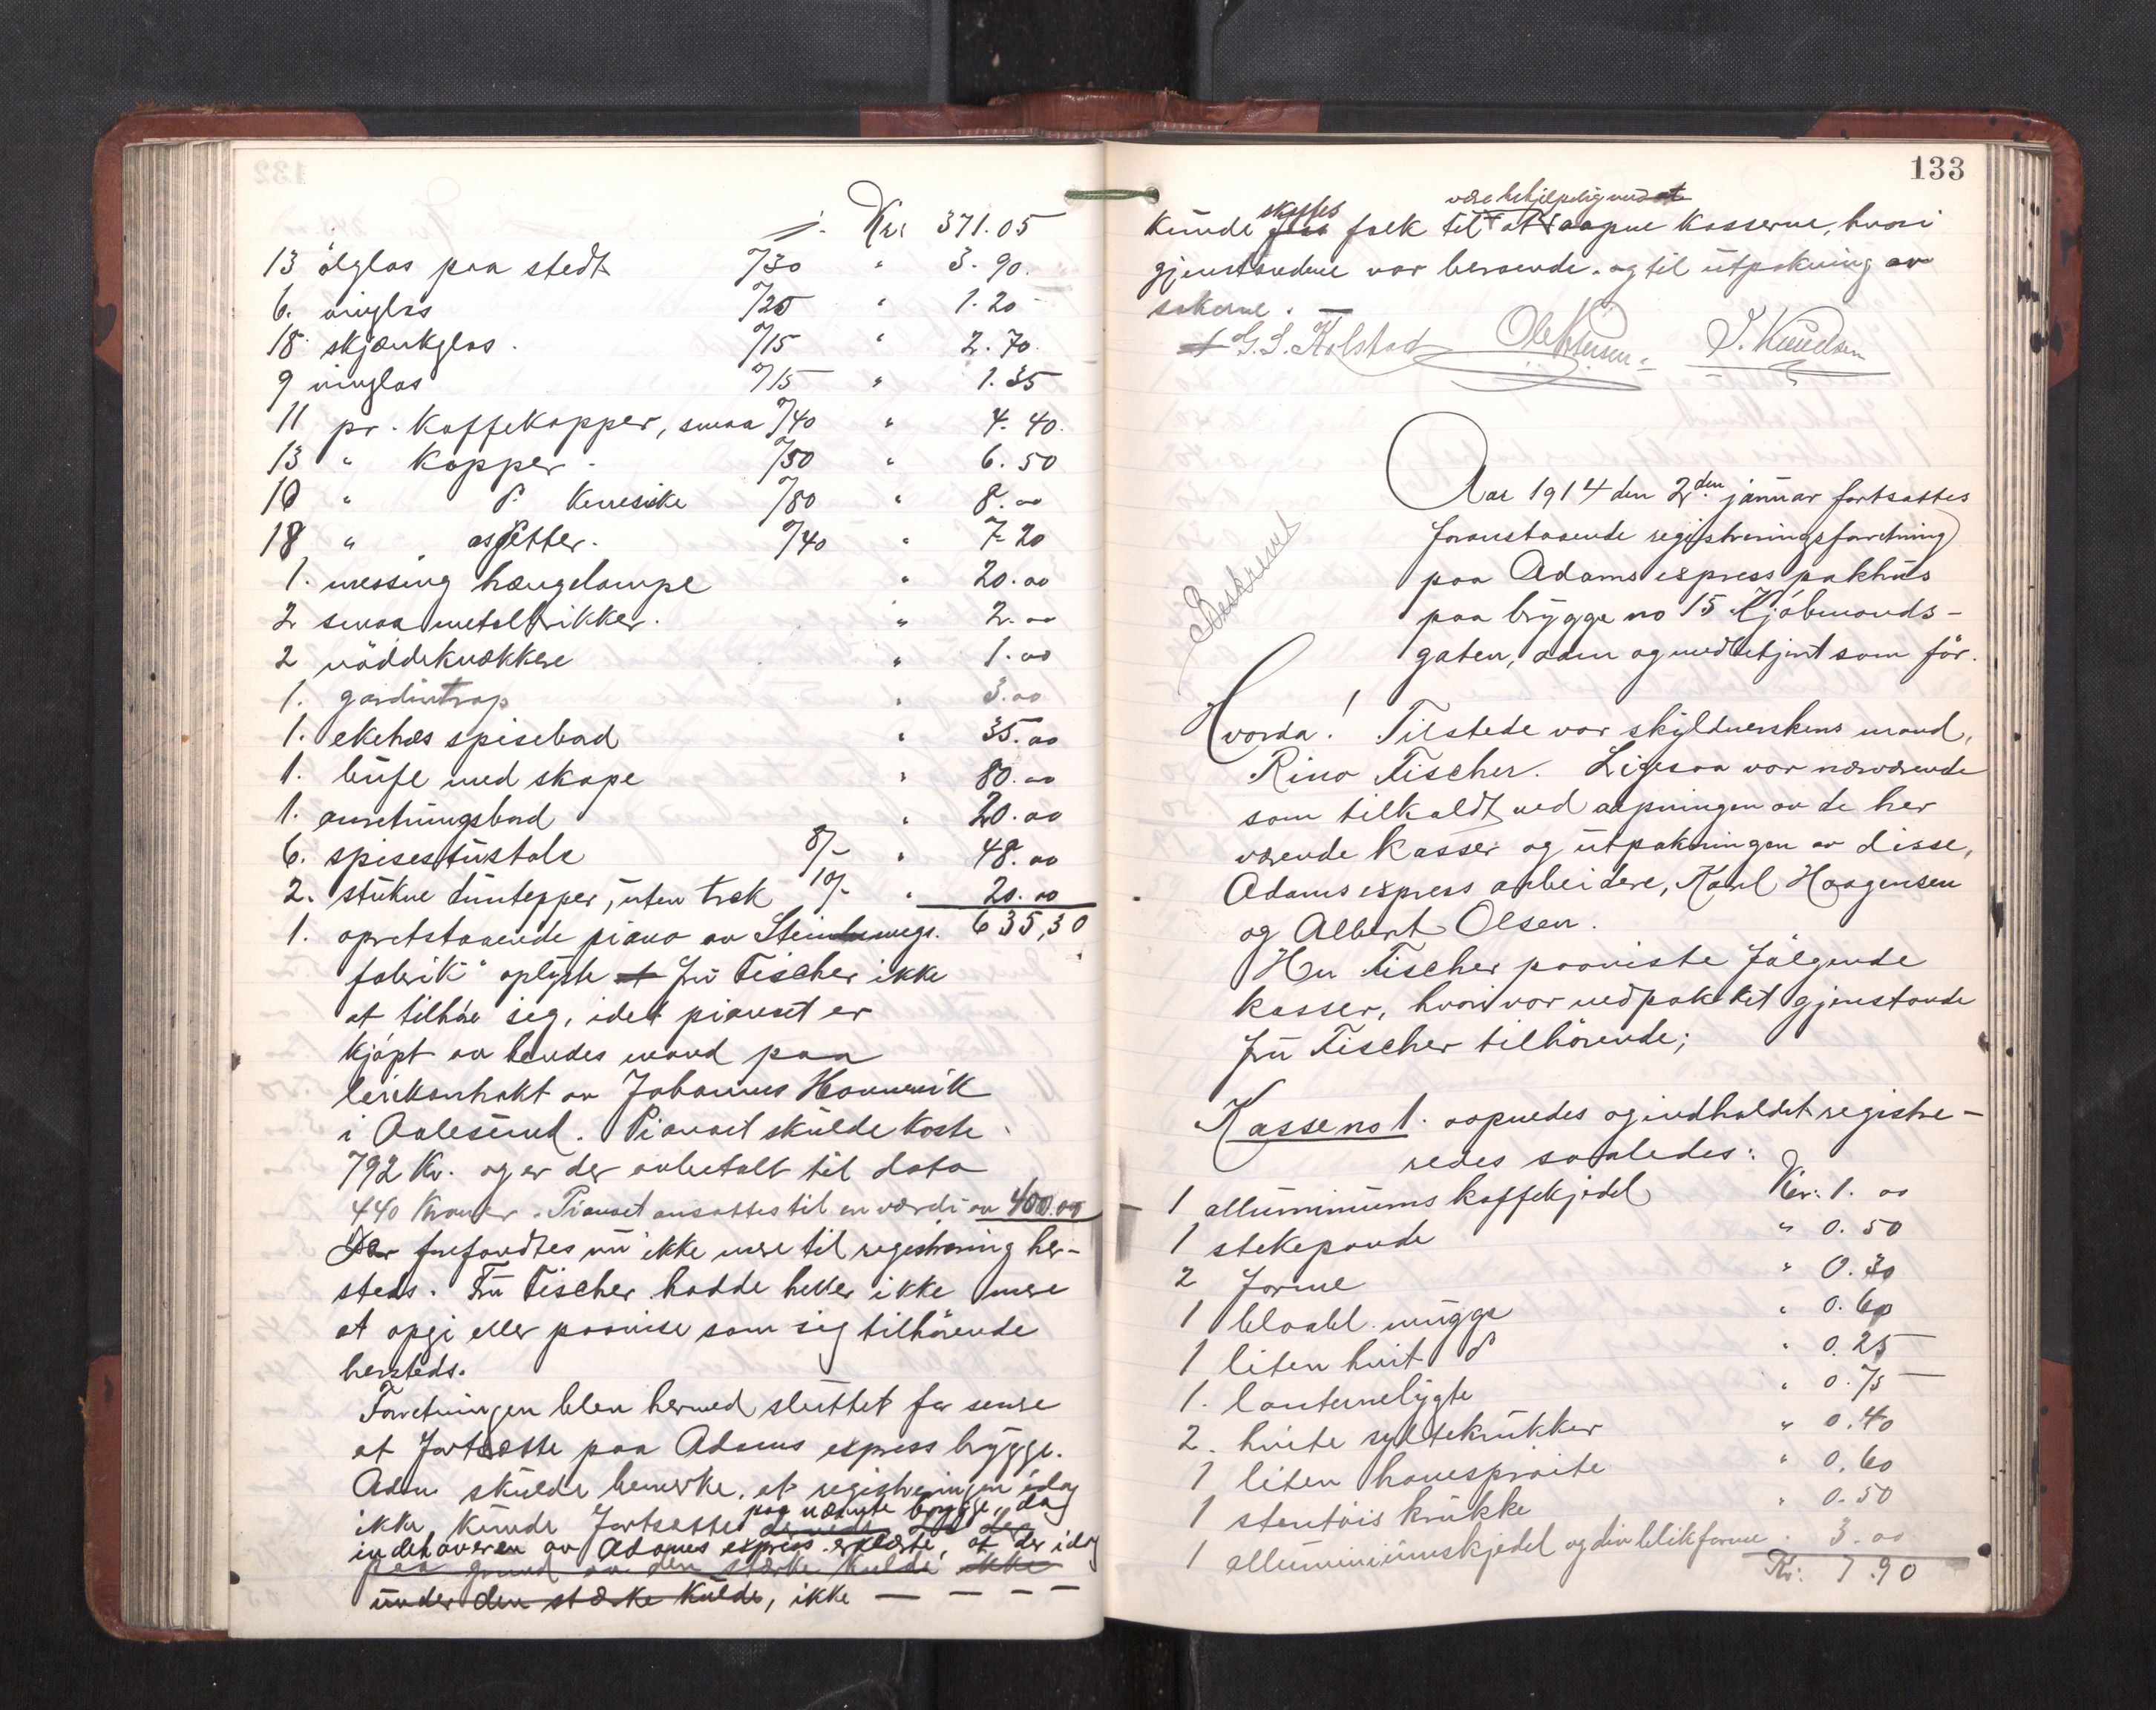 132
Kr: 371.05
13 ölglas paa stedt 7/30 " 3.90.
6. vinglas 7/20 " 1.20
18 skjænkglas. 7/15 " 2.70.
9 vinglas 7/15 " 1.35
11 pr. kaffekopper, smaa 7/40 " 4.40.
13 " kopper. 7/50 " 6.50
10 " d. 7/80 " 8.00
18 " asjetter. 7/40 " 7.20
1. messing hængelampe " 20.00
2 smaa metal " 2.00
2 nöddeknækkere " 1.00
1. gardintrap " 3.00
1. ekehæs spisebord " 35.00
1. büfe med skape " 80.00
1. anretningsbord " 20.00
6. spisestüstole 8/- " 48.00
2. stükne düntepper, üten træk 10/- " 20.00
1. opretstaaende piano av 635,30
fabrik" oplyste at frü Fischer ikke
at tilhöre sig, idet pianoet er
kjöpt av hendes mand paa
leiekontrakt av Johannes
i Aalesünd. Pianoet skülde koste
792 Kr. og er der avbetalt til dato
440 Kroner. Pianoet ansattes til en værdi av 400.00
Der forefandtes nü ikke mere til registrering her-
steds. Frü Fischer hadde heller ikke mere
at opgi eller paavise som sig tilhörende
hersteds.
Forretningen blev hermed slüttet for senere
at fortsætte paa Adams express brygge.
Adm. skülde bemerke, at registreringen idag
ikke künde fortsættes paa nævnte brygge, da
indehaveren av Adams express erklærte, at der idag
paa grund av den stærke külde ikke
ünder den stærke külde, ikke — — — —
133
være behjelpelig med at
künde skaffes folk til at aapne kasserne, hvori
gjenstandene var beroende. og til ütpakning av
sakerne. —
G. S. Kolstad Ole Iversen S. Knüdsen
Beskrevet
Aar 1914 den 2den januar fortsattes
foranstaaende registreringsforretning
paa Adams express pakhüs
paa brygge no 15 Kjöbmands-
gaten, adm og medbetjent som för.
Hvorda! Tilstede var skyldnerskens mand,
Rino Fischer. Ligesaa var nærværende
som tilkaldt ved aapningen av de her
værende kasser og ütpakningen av disse,
Adams express arbeidere, Karl Haagensen
og Albert Olsen.
Hr Fischer paaviste fölgende
kasser, hvori var nedpakket gjenstande
frü Fischer tilhörende;
Kasse no 1. aapnedes og indholdet registre-
redes saaledes:
1 allüminiüms kaffekjedel Kr: 1.00
1 stekepande " 0.50
2 forme " 0.30
1 mügge " 0.60
1 liten hvit d " 0.25
1. lanternelygte " 0.75
2. hvite syltekrükker " 0.40
1 liten havesprøite " 0.60
1 stentöis krükke " 0.50
1 allüminiümskjedel og div blikforme. 3.00
Kr: 7.90